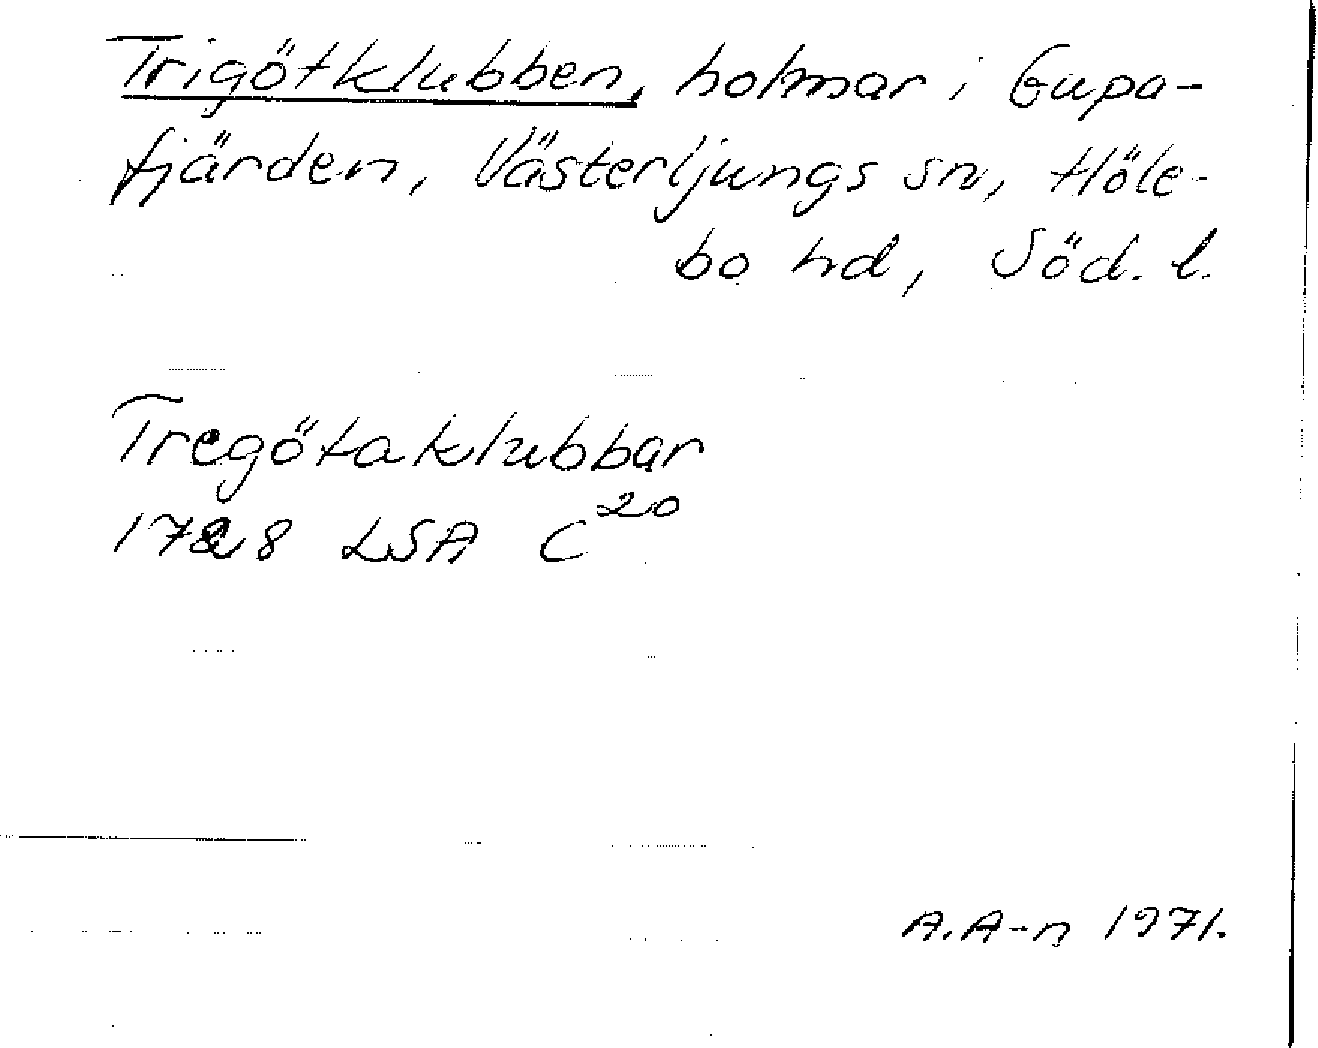 Trigötklubben, holmar i Gupa-
fjärden, Västerljungs sn, Höle-
bo hd, Söd. l.
Tregötaklubbar
1728 LSA C20
A.A-n 1971.